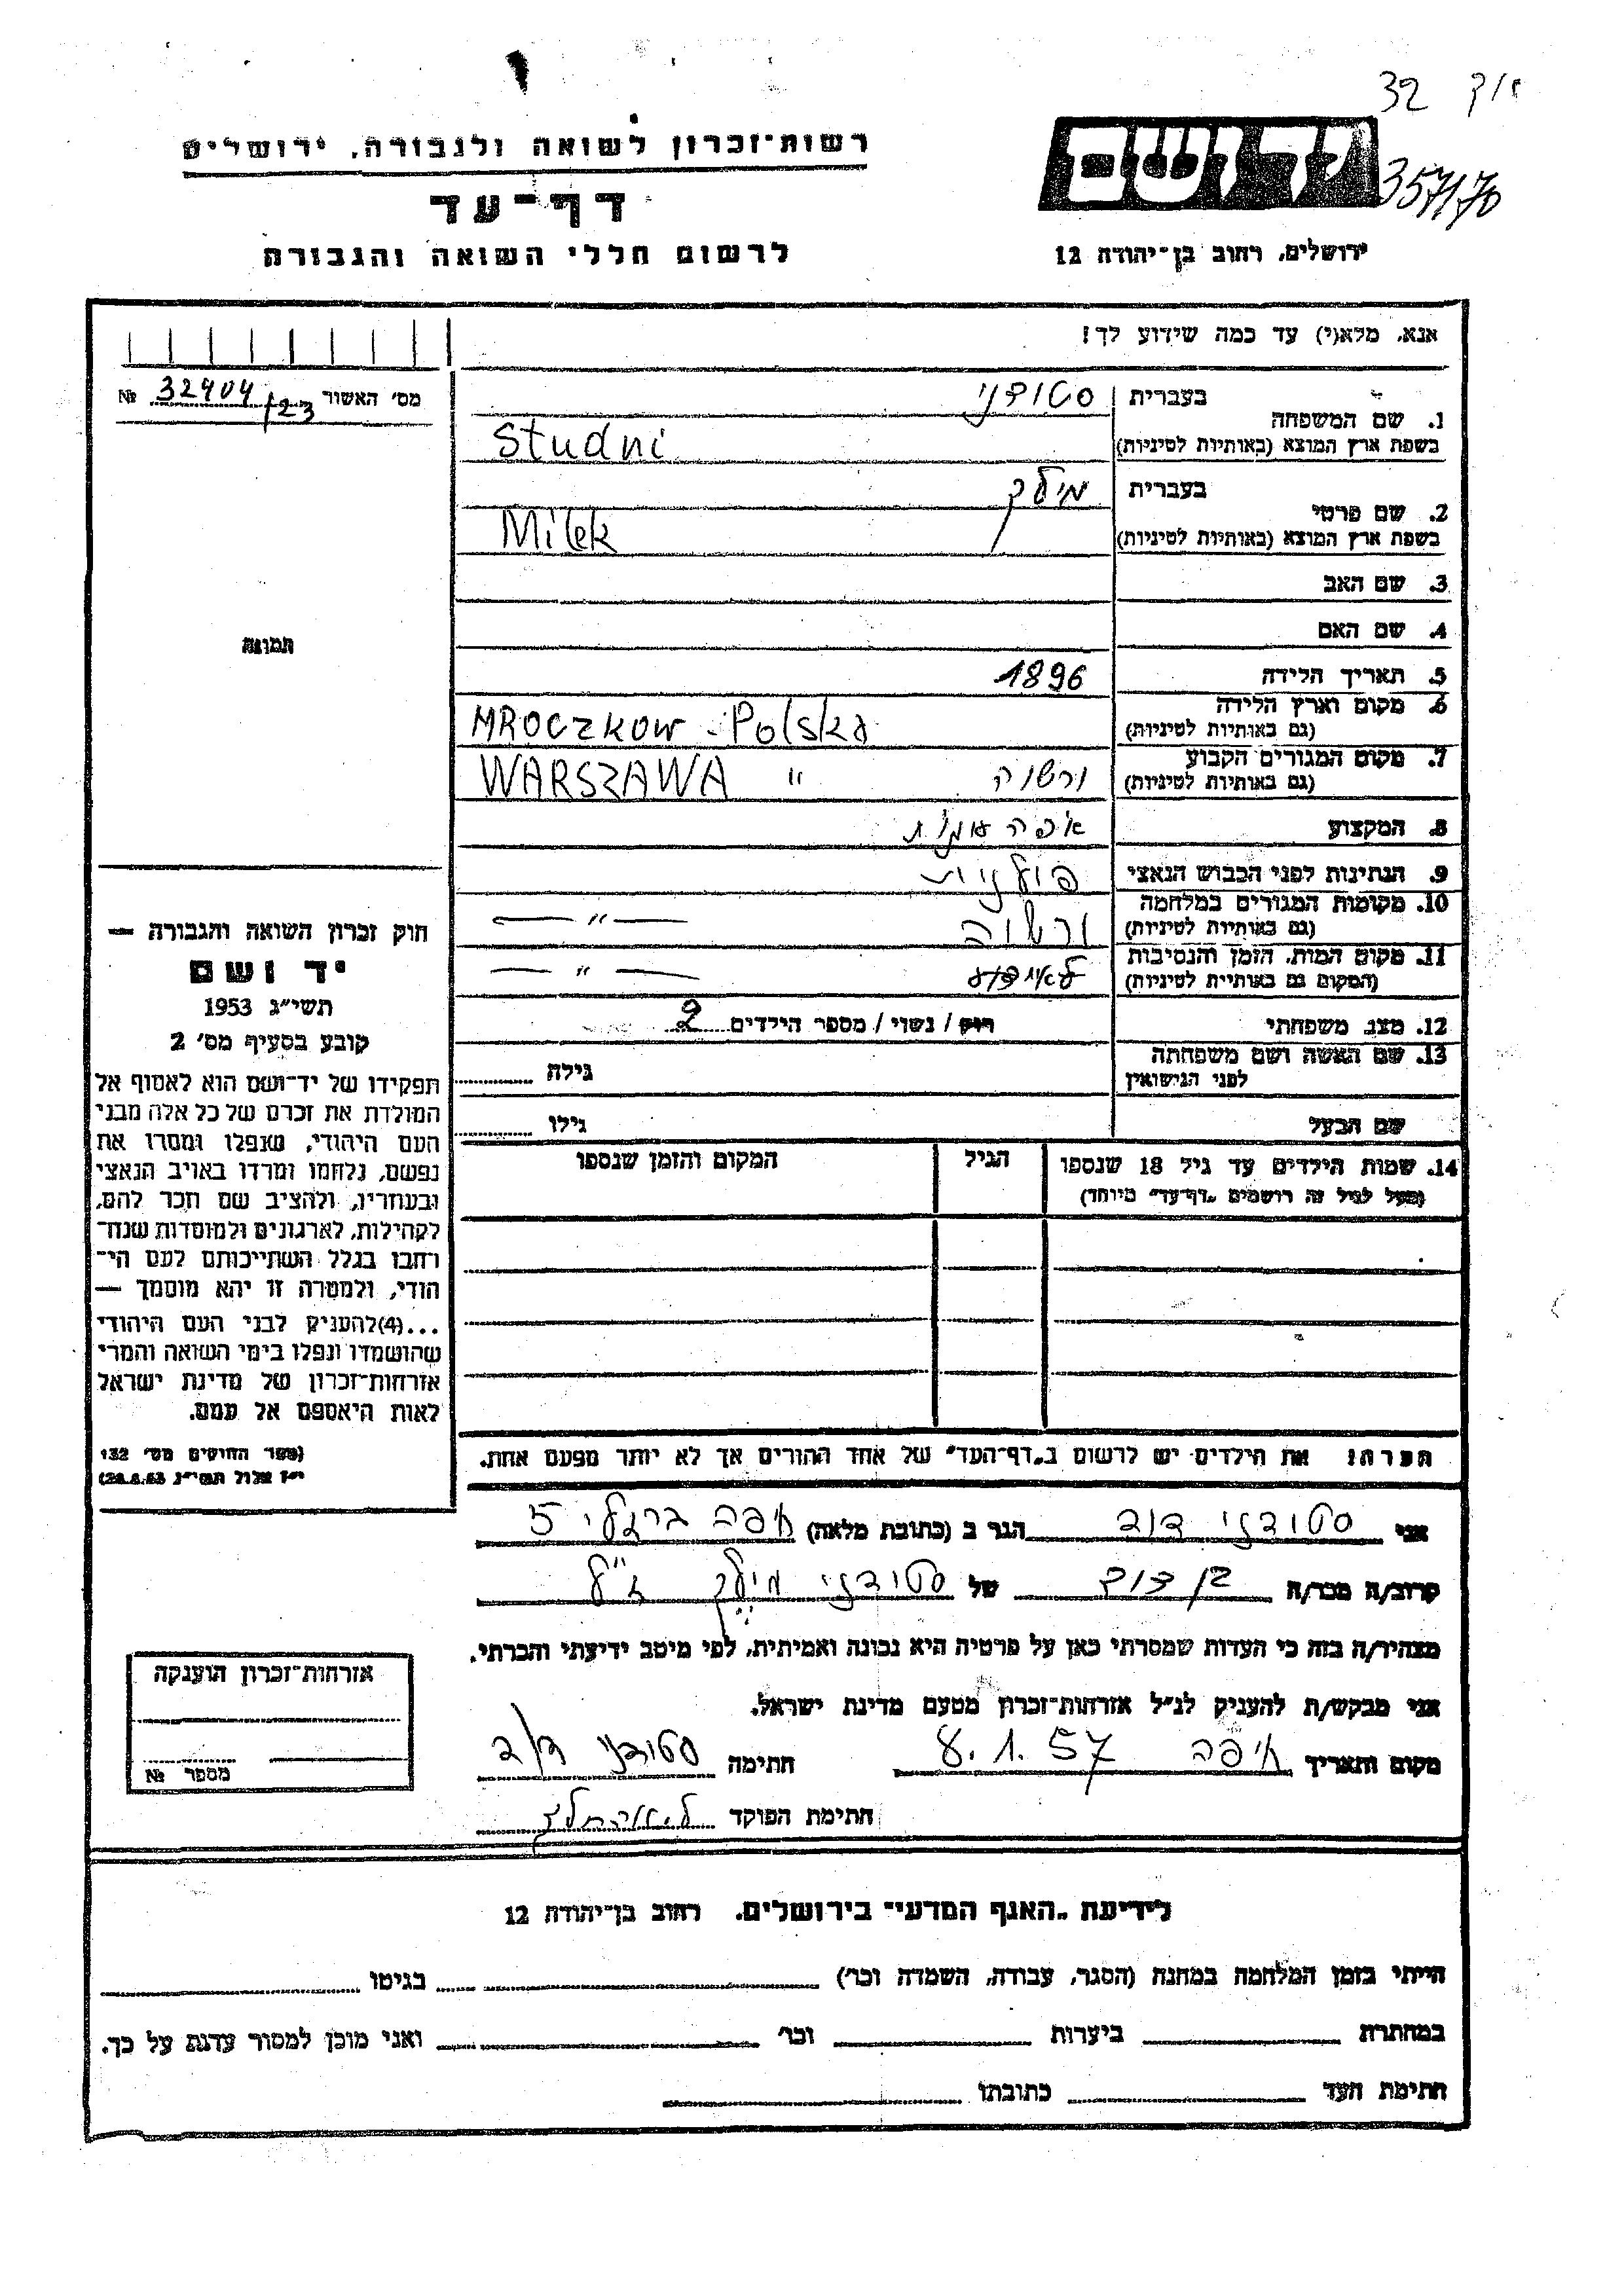 32
357/70
יד ושם
ירושלים, רחוב בן־יהודה 12
רשות־זכרון לשואה ולגבורה, ירושלים
דף־עד
לרשום חללי השואה והגבורה
אנא, מלא(י) עד כמה שידוע לך!
מס׳ האשור 32404/23 №
תמונה
1. שם המשפחה
בעברית סטודני
בשפת ארץ המוצא (באותיות לטיניות) Studni
2. שם פרטי
בעברית מילק
בשפת ארץ המוצא (באותיות לטיניות) Milek
3. שם האב
4. שם האם
5. תאריך הלידה 1896
6. מקום וארץ הלידה
(גם באותיות לטיניות) MROCZKOW - Polska
7. מקום המגורים הקבוע
(גם באותיות לטיניות) ורשה WARSZAWA "
8. המקצוע אופה
9. הנתינות לפני הכבוש הנאצי פולנית
10. מקומות המגורים במלחמה
(גם באותיות לטיניות) ורשה — " —
11. מקום המות, הזמן והנסיבות
(המקום גם באותיות לטיניות) לא ידוע — " —
12. מצב משפחתי רווק / נשוי / מספר הילדים 2
13. שם האשה ושם משפחתה
לפני הנישואין גילה
שם הבעל גילו
14. שמות הילדים עד גיל 18 שנספו
(מעל לגיל זה רושמים „דף־עד" מיוחד)
הגיל
המקום והזמן שנספו
חוק זכרון השואה והגבורה —
יד ושם
תשי״ג 1953
קובע בסעיף מס׳ 2
תפקידו של יד־ושם הוא לאסוף אל
המולדת את זכרם של כל אלה מבני
העם היהודי, שנפלו ומסרו את
נפשם, נלחמו ומרדו באויב הנאצי
ובעוזריו, ולהציב שם וזכר להם,
לקהילות, לארגונים ולמוסדות שנח־
רבו בגלל השתייכותם לעם הי־
הודי, ולמטרה זו יהא מוסמך —
...(4) להעניק לבני העם היהודי
שהושמדו ונפלו בימי השואה והמרי
אזרחות־זכרון של מדינת ישראל
לאות היאספם אל עמם.
(ספר החוקים מס׳ 132
י״ז אלול תשי״ג 28.8.53)
הערה: את הילדים יש לרשום ב„דף־העד" של אחד ההורים אך לא יותר מפעם אחת.
אני סטודני דוד הגר ב (כתובת מלאה) חיפה ברזלי 5
קרוב/ה מכר/ה בן דוד של סטודני מילק ז״ל
מצהיר/ה בזה כי העדות שמסרתי כאן על פרטיה היא נכונה ואמיתית, לפי מיטב ידיעתי והכרתי.
אני מבקש/ת להעניק לנ״ל אזרחות־זכרון מטעם מדינת ישראל.
מקום ותאריך חיפה 8.1.57 חתימה סטודני דוד
חתימת הפוקד
אזרחות־זכרון הוענקה
מספר №
לידיעת „האגף המדעי" בירושלים, רחוב בן־יהודה 12
הייתי בזמן המלחמה במחנה (הסגר, עבודה, השמדה וכו׳) בגיטו
במחתרת ביערות וכו׳ ואני מוכן למסור עדות על כך.
חתימת העד כתובתו